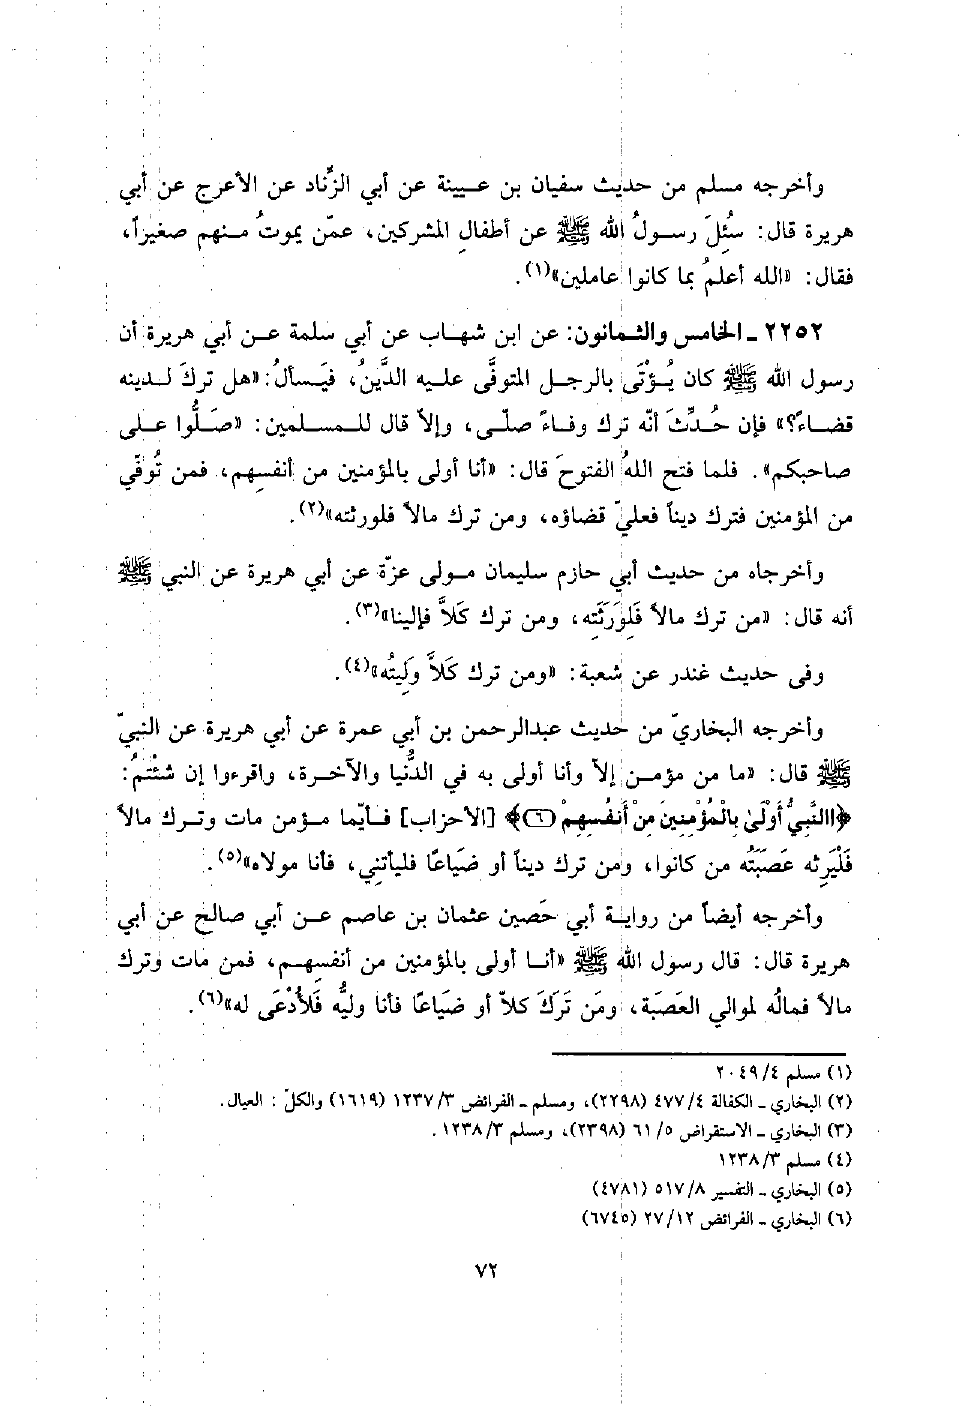 وأخرجه مسلم من حديث سفيان بن عيينة عن أبي الزِّناد عن الأعرج عن أبي
هريرة قال: سُئِلَ رسولُ الله ﷺ عن أطفالِ المشركين، عمّن يموتُ منهم صغيراً،
فقال: «الله أعلمُ بما كانوا عاملين»(١).
٢٢٥٢ ـ الخامس والثمانون: عن ابن شهاب عن أبي سلمة عن أبي هريرة أن
رسول الله ﷺ كان يُؤْتَى بالرجل المتوفَّى عليه الدَّينُ، فيَسألُ: «هل تركَ لدينه
قضاءً؟» فإن حُدِّثَ أنّه ترك وفاءً صلّى، وإلاّ قال للمسلمين: «صَلُّوا على
صاحبكم». فلما فتح اللهُ الفتوحَ قال: «أنا أولى بالمؤمنين من أنفسهِم، فمن تُوفّي
من المؤمنين فترك ديناً فعليّ قضاؤه، ومن ترك مالاً فلورثته»(٢).
وأخرجاه من حديث أبي حازم سليمان مولى عزّة عن أبي هريرة عن النبي ﷺ
أنه قال: «من ترك مالاً فَلِوَرَثَتِه، ومن ترك كَلاًّ فإلينا»(٣).
وفى حديث غندر عن شعبة: «ومن ترك كَلاًّ وَلِيتُه»(٤).
وأخرجه البخاريّ من حديث عبدالرحمن بن أبي عمرة عن أبي هريرة عن النبيّ
ﷺ قال: «ما من مؤمن إلاّ وأنا أولى به في الدُّنيا والآخرة، واقرءوا إن شئْتمُ:
﴿النَّبِيُّ أَوْلَىٰ بِالْمُؤْمِنِينَ مِنْ أَنفُسِهِمْ (٦)﴾ [الأحزاب] فأيّما مؤمن مات وترك مالاً
فَلْيَرِثه عَصَبَتُه من كانوا، ومن ترك ديناً أو ضَيَاعًا فليأتني، فأنا مولاه»(٥).
وأخرجه أيضاً من رواية أبي حَصين عثمان بن عاصم عن أبي صالح عن أبي
هريرة قال: قال رسول الله ﷺ «أنا أولى بالمؤمنين من أنفسِهِم، فمن مات وترك
مالاً فمالُه لموالي العَصَبة، ومَن تَرَكَ كلاّ أو ضَيَاعًا فأنا وليُّه فَلأُدْعَى له»(٦).
(١) مسلم ٢٠٤٩/٤
(٢) البخاري ـ الكفالة ٤٧٧/٤ (٢٢٩٨)، ومسلم ـ الفرائض ١٢٣٧/٣ (١٦١٩) والكلّ : العيال.
(٣) البخاري ـ الاستقراض ٦١/٥ (٢٣٩٨)، ومسلم ١٢٣٨/٣.
(٤) مسلم ١٢٣٨/٣
(٥) البخاري ـ التفسير ٥١٧/٨ (٤٧٨١)
(٦) البخاري ـ الفرائض ٢٧/١٢ (٦٧٤٥)
٧٢